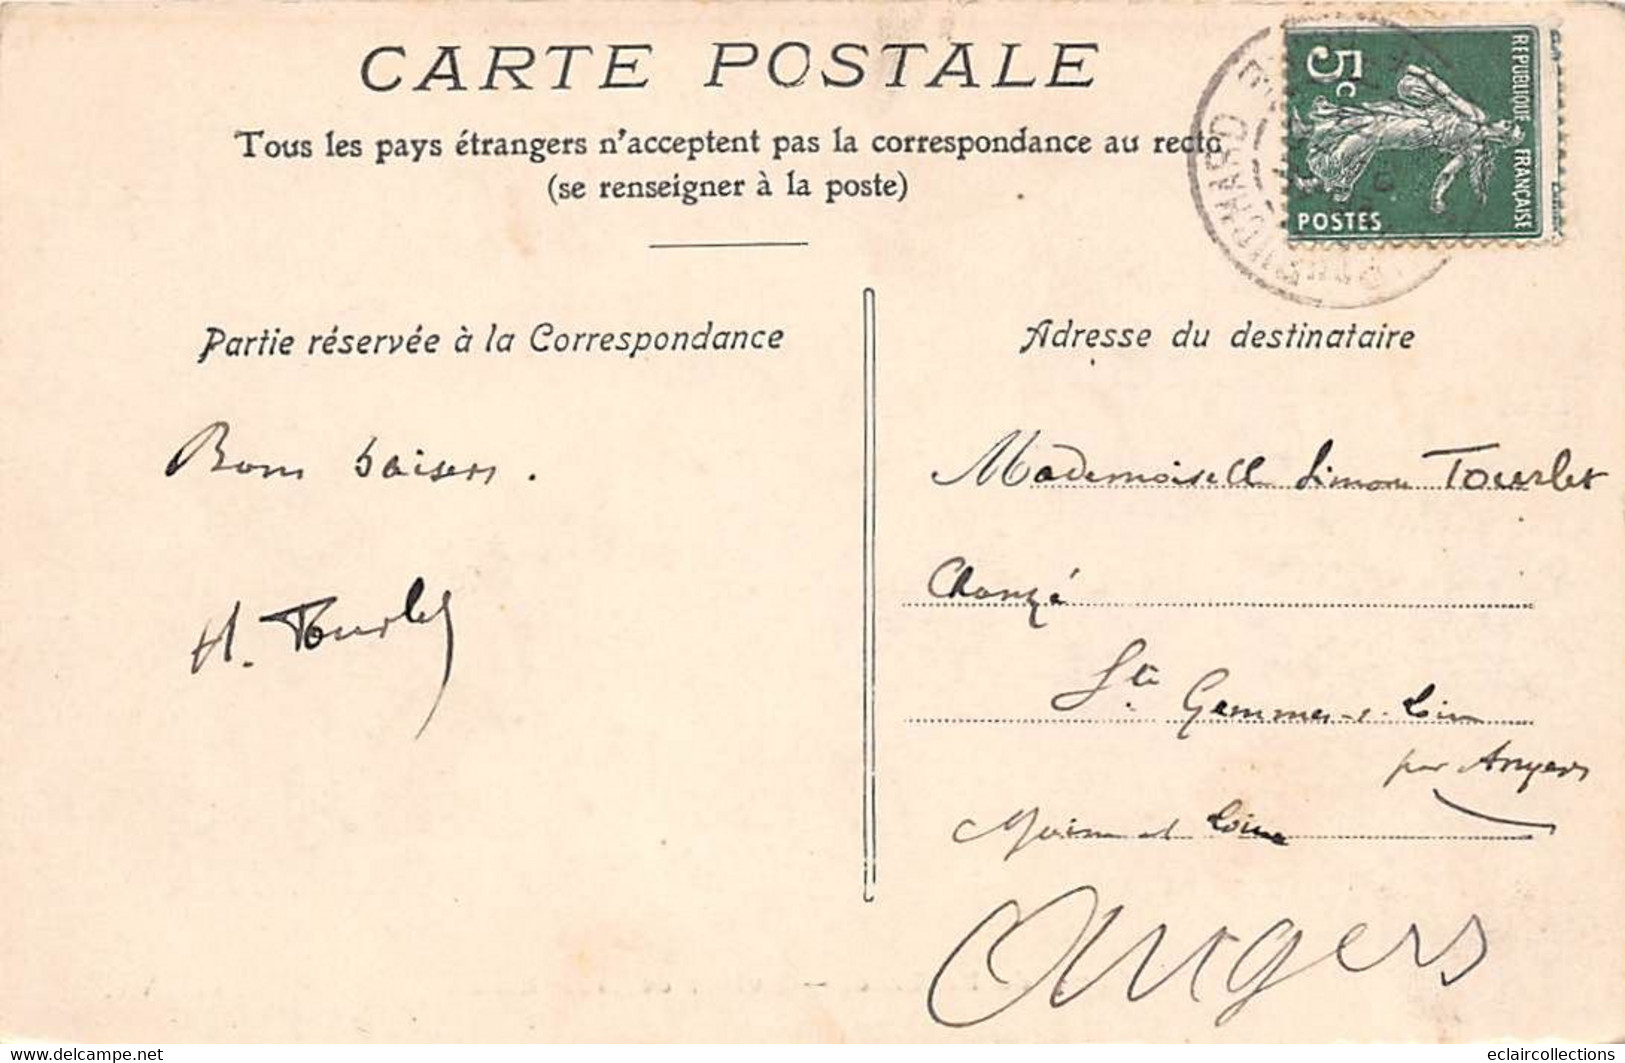 CARTE POSTALE
Tous les pays étrangers n'acceptent pas la correspondance au recto
(se renseigner à la poste)
REPUBLIQUE FRANÇAISE
5c
POSTES
Partie réservée à la Correspondance
Adresse du destinataire
Bons baisers.
H. Tourlet
Mademoiselle Simone Tourlet
Chanzé
Ste Gemmes-s-Loire
par Angers
Maine et Loire
Angers
eclaircollections
www.delcampe.net